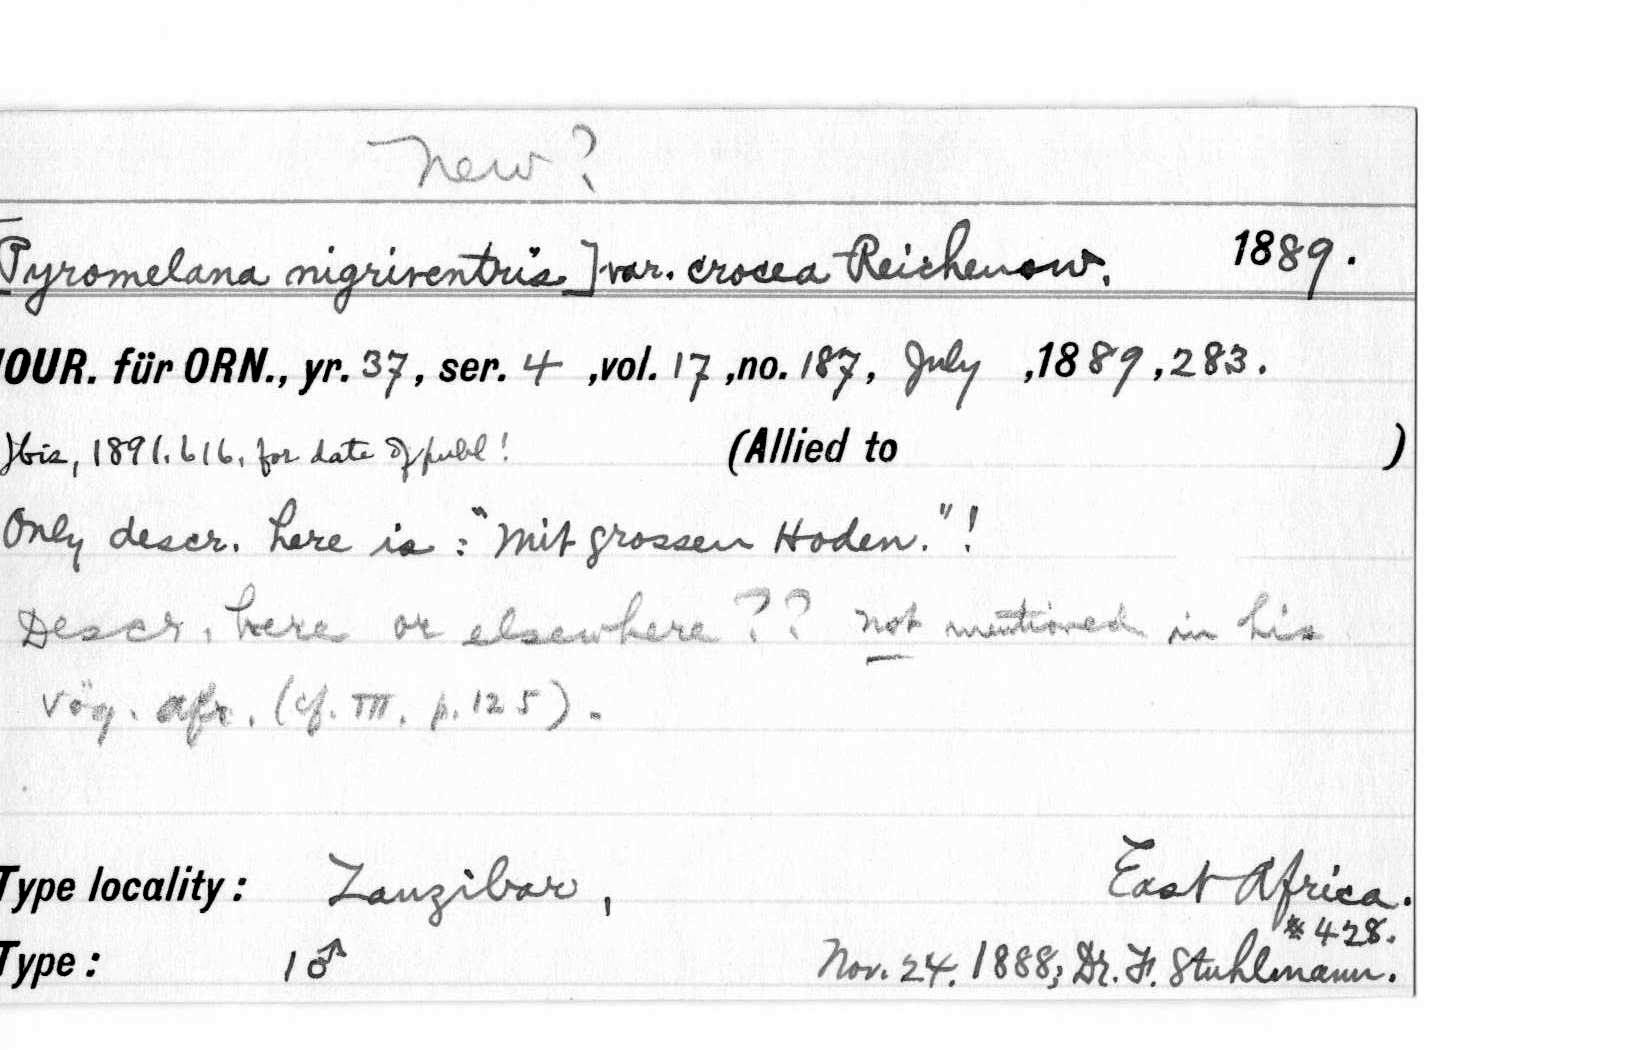 New?
[Pyromelana nigriventris] var. crocea Reichenow, 1889.
JOUR. für ORN., yr. 37, ser. 4, vol. 17, no. 187, July, 1889, 283.
Ibis, 1891. 616, for date of publ! (Allied to )
Only descr. here is: "Mit grossen Hoden."!
Descr. here or elsewhere?? not mentioned in his
Vög. Afr. (cf. III. p. 125).
Type locality: Zanzibar, East Africa.
#428.
Type: 1♂ Nov. 24. 1888; Dr. F. Stuhlmann.